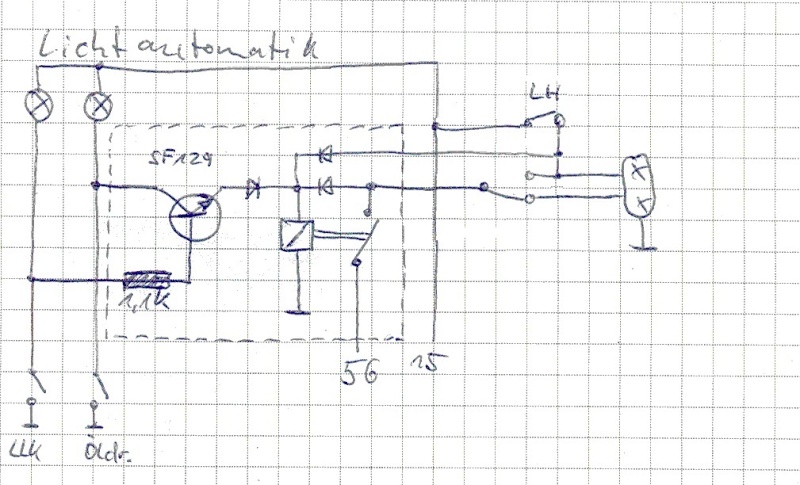 Lichtautomatik
LH
SF129
1,1K
56
15
LLK
Öldr.